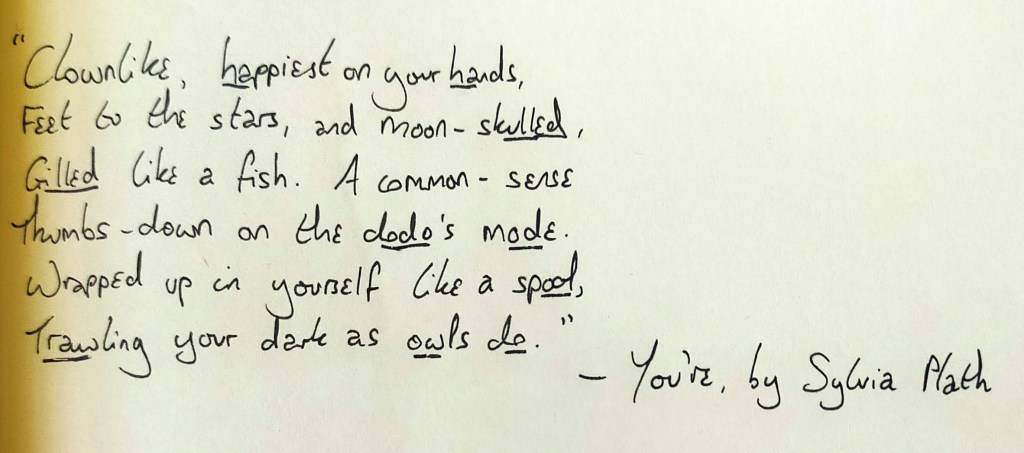 "Clownlike, happiest on your hands,
Feet to the stars, and moon-skulled,
Gilled like a fish. A common-sense
Thumbs-down on the dodo's mode.
Wrapped up in yourself like a spool,
Trawling your dark as owls do."
- You're, by Sylvia Plath